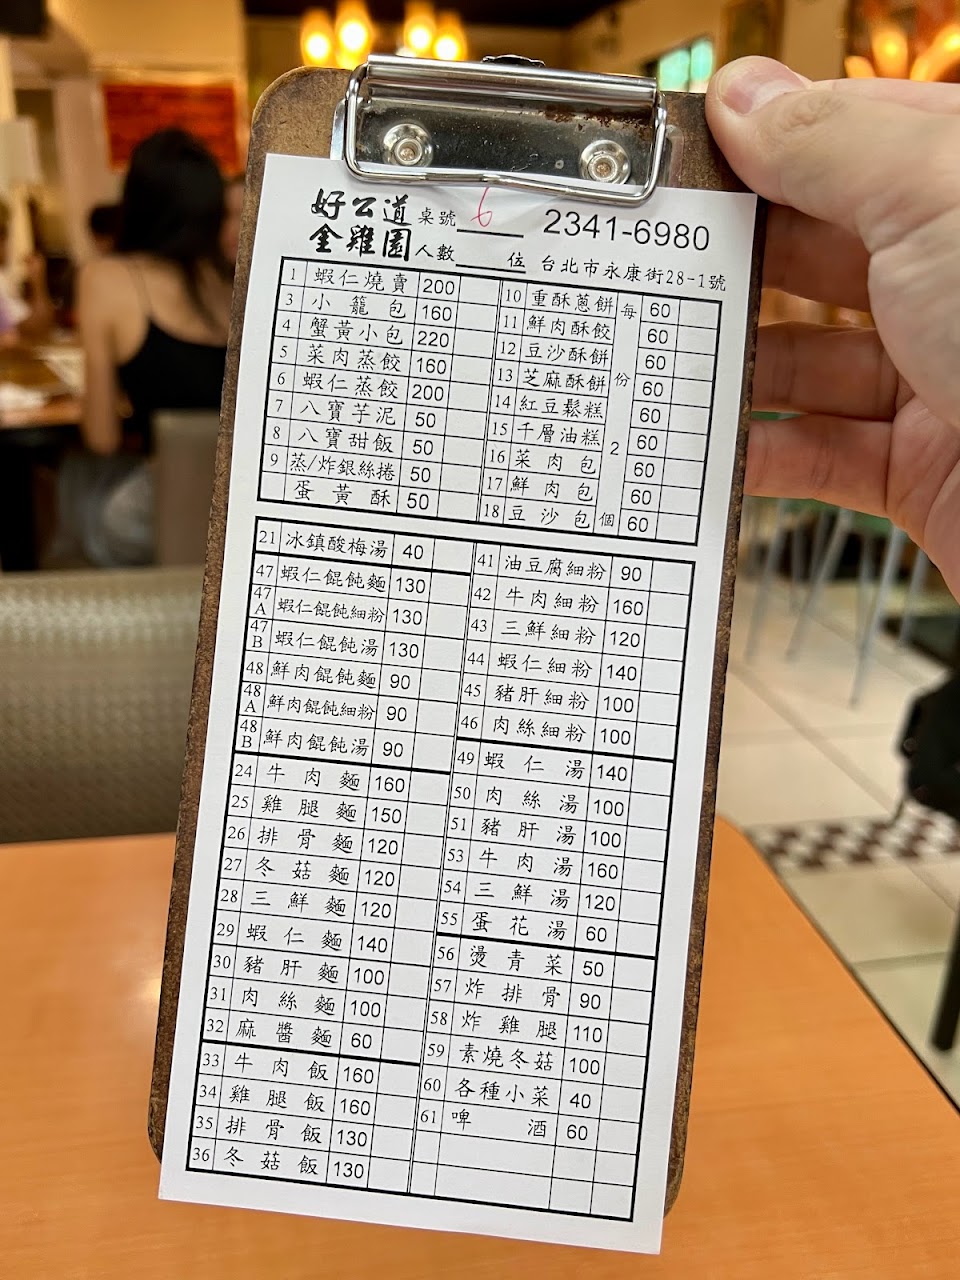 好公道 桌號 6 2341-6980
金雞園 人數 位 台北市永康街28-1號
1 蝦仁燒賣 200
3 小籠包 160
4 蟹黃小包 220
5 菜肉蒸餃 160
6 蝦仁蒸餃 200
7 八寶芋泥 50
8 八寶甜飯 50
9 蒸/炸銀絲捲 50
蛋黃酥 50
10 重酥蔥餅 60
11 鮮肉酥餃 60
12 豆沙酥餅 60
13 芝麻酥餅 60
14 紅豆鬆糕 60
15 千層油糕 60
16 菜肉包 60
17 鮮肉包 60
18 豆沙包 60
每份2個
21 冰鎮酸梅湯 40
47 蝦仁餛飩麵 130
47A 蝦仁餛飩細粉 130
47B 蝦仁餛飩湯 130
48 鮮肉餛飩麵 90
48A 鮮肉餛飩細粉 90
48B 鮮肉餛飩湯 90
24 牛肉麵 160
25 雞腿麵 150
26 排骨麵 120
27 冬菇麵 120
28 三鮮麵 120
29 蝦仁麵 140
30 豬肝麵 100
31 肉絲麵 100
32 麻醬麵 60
33 牛肉飯 160
34 雞腿飯 160
35 排骨飯 130
36 冬菇飯 130
41 油豆腐細粉 90
42 牛肉細粉 160
43 三鮮細粉 120
44 蝦仁細粉 140
45 豬肝細粉 100
46 肉絲細粉 100
49 蝦仁湯 140
50 肉絲湯 100
51 豬肝湯 100
53 牛肉湯 160
54 三鮮湯 120
55 蛋花湯 60
56 燙青菜 50
57 炸排骨 90
58 炸雞腿 110
59 素燒冬菇 100
60 各種小菜 40
61 啤酒 60